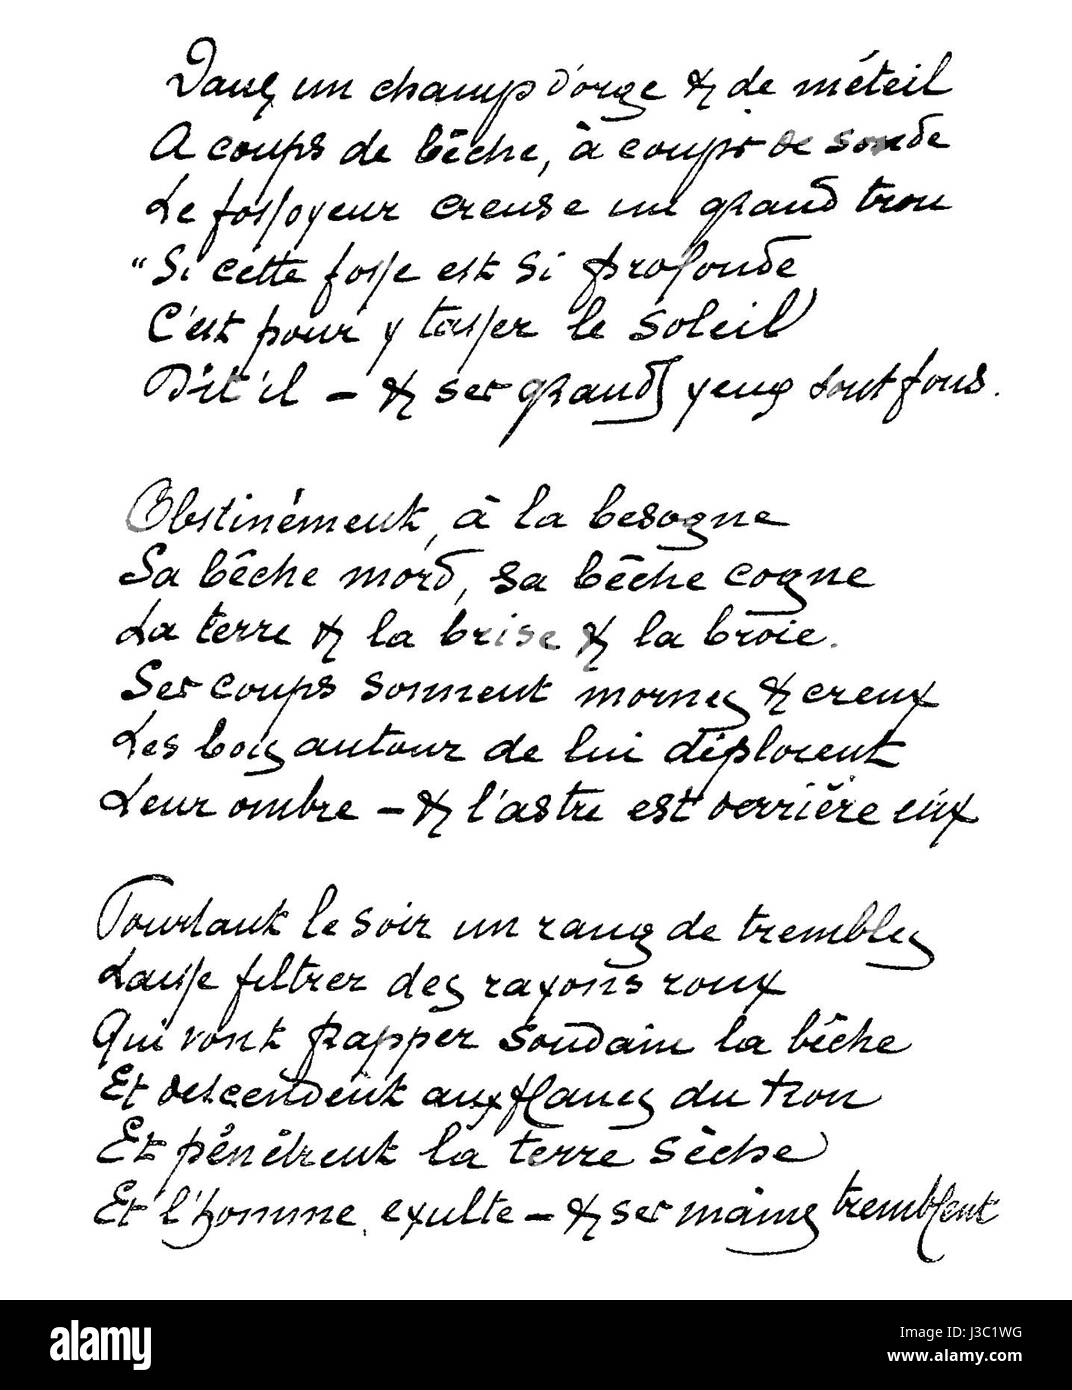 Dans un champ d'orge & de méteil
A coups de bêche, à coups de sonde
Le fossoyeur creuse un grand trou
"Si cette fosse est si profonde
C'est pour y tasser le soleil"
Dit'il – & ses grands yeux sont fous.
Obstinément, à la besogne
Sa bêche mord, sa bêche cogne
La terre & la brise & la broie.
Ses coups sonnent mornes & creux
Les bois autour de lui déplorent
Leur ombre – & l'astre est derrière eux
Pourtant le soir un rang de trembles
Laisse filtrer des rayons roux
Qui vont frapper soudain la bêche
Et descendent aux flancs du trou
Et pénètrent la terre sèche
Et l'homme exulte – & ses mains tremblent
alamy
Image ID: J3C1WG
www.alamy.com